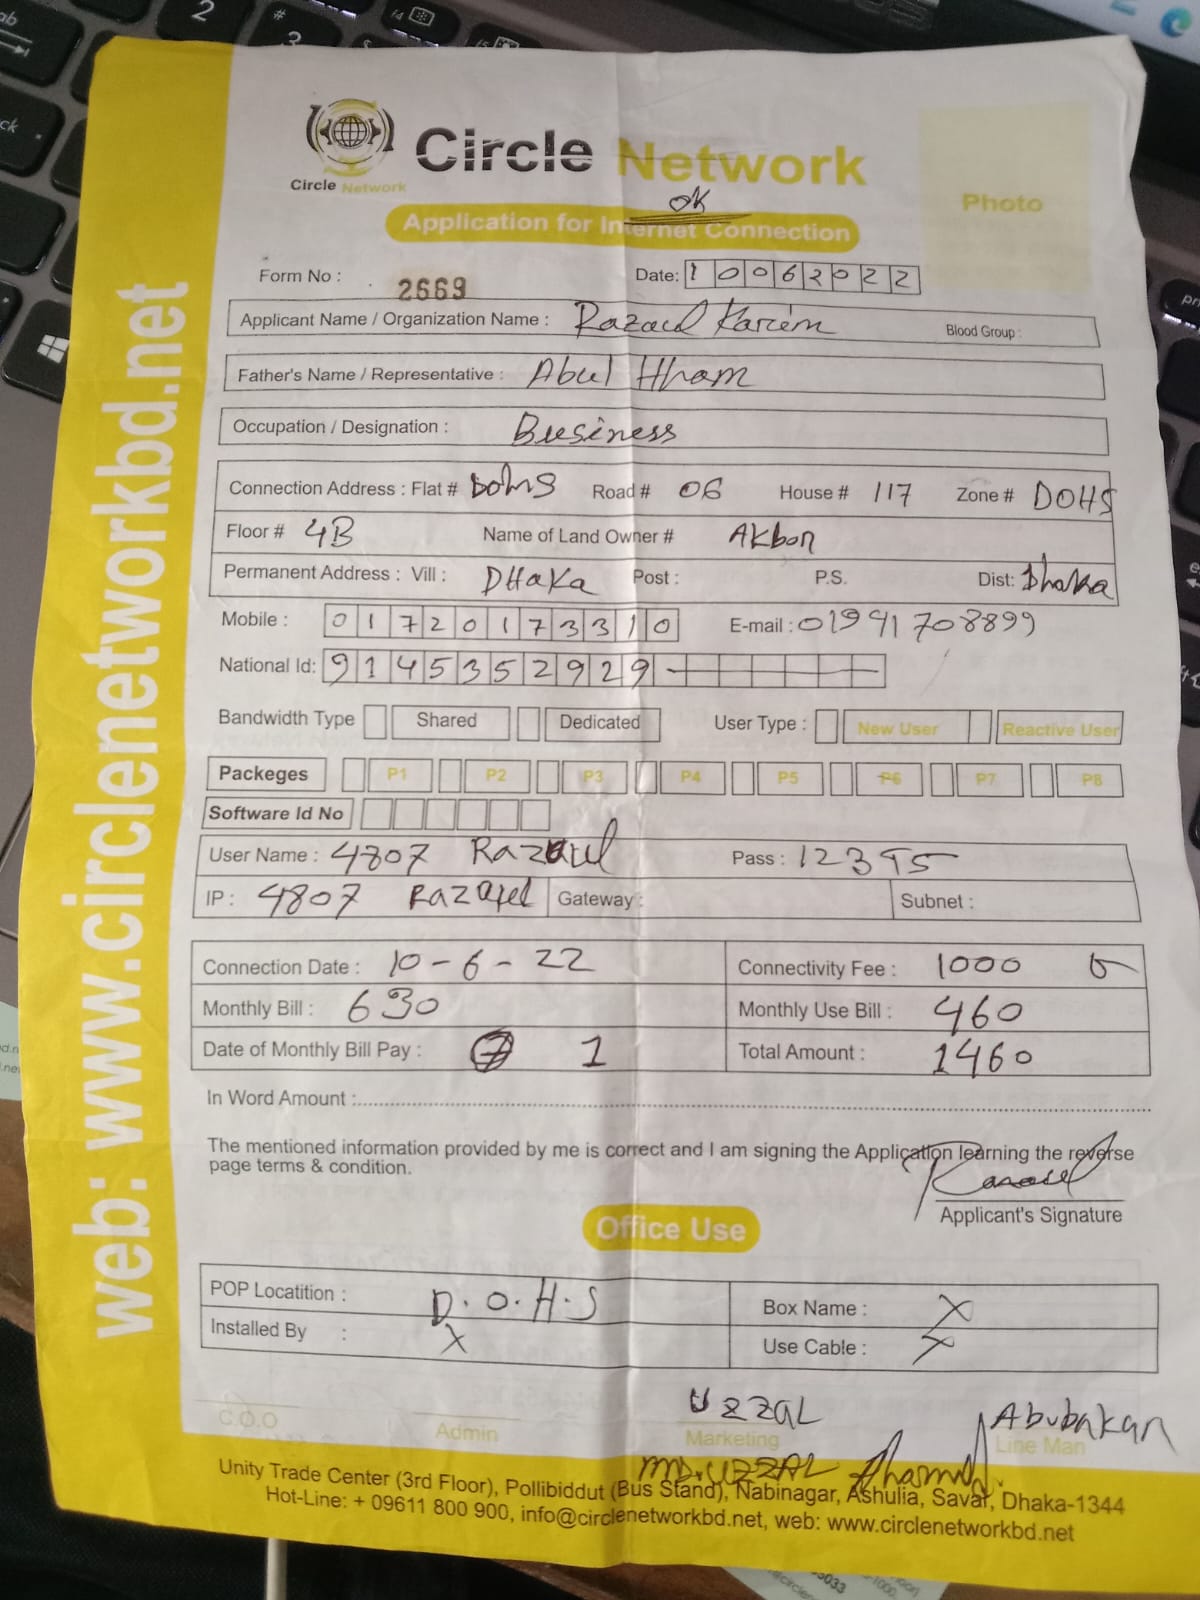 Circle Network
Circle Network
Photo
OK
Application for Internet Connection
Form No : 2669
Date: 1 0 0 6 2 0 2 2
Applicant Name / Organization Name : Razaul Karim
Blood Group :
Father's Name / Representative : Abul
Occupation / Designation : Business
Connection Address : Flat # DOHS Road # 06 House # 117 Zone # DOHS
Floor # 4B Name of Land Owner # Akbor
Permanent Address : Vill : DHaKa Post : P.S. Dist: Dhaka
Mobile : 0 1 7 2 0 1 7 3 3 1 0 E-mail : 01941708899
National Id: 9 1 4 5 3 5 2 9 2 9
Bandwidth Type Shared Dedicated User Type : New User Reactive User
Packeges P1 P2 P3 P4 P5 P6 P7 P8
Software Id No
User Name : 4807 Razaul Pass : 12345
IP : 4807 Razaul Gateway : Subnet :
Connection Date : 10-6-22 Connectivity Fee : 1000
Monthly Bill : 630 Monthly Use Bill : 460
Date of Monthly Bill Pay : 1 Total Amount : 1460
In Word Amount :
The mentioned information provided by me is correct and I am signing the Application learning the reverse
page terms & condition.
Applicant's Signature
Office Use
POP Locatition : D.O.H.S Box Name : X
Installed By : X Use Cable : X
UZZAL Abubakar
C.O.O Admin Marketing Line Man
MD. UZZAL
Unity Trade Center (3rd Floor), Pollibiddut (Bus Stand), Nabinagar, Ashulia, Savar, Dhaka-1344
Hot-Line: + 09611 800 900, info@circlenetworkbd.net, web: www.circlenetworkbd.net
web: www.circlenetworkbd.net